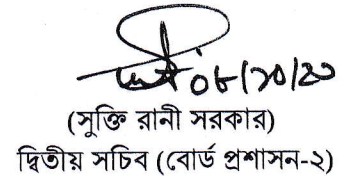 ০৮/১০/২০
(সুক্তি রানী সরকার)
দ্বিতীয় সচিব (বোর্ড প্রশাসন-২)